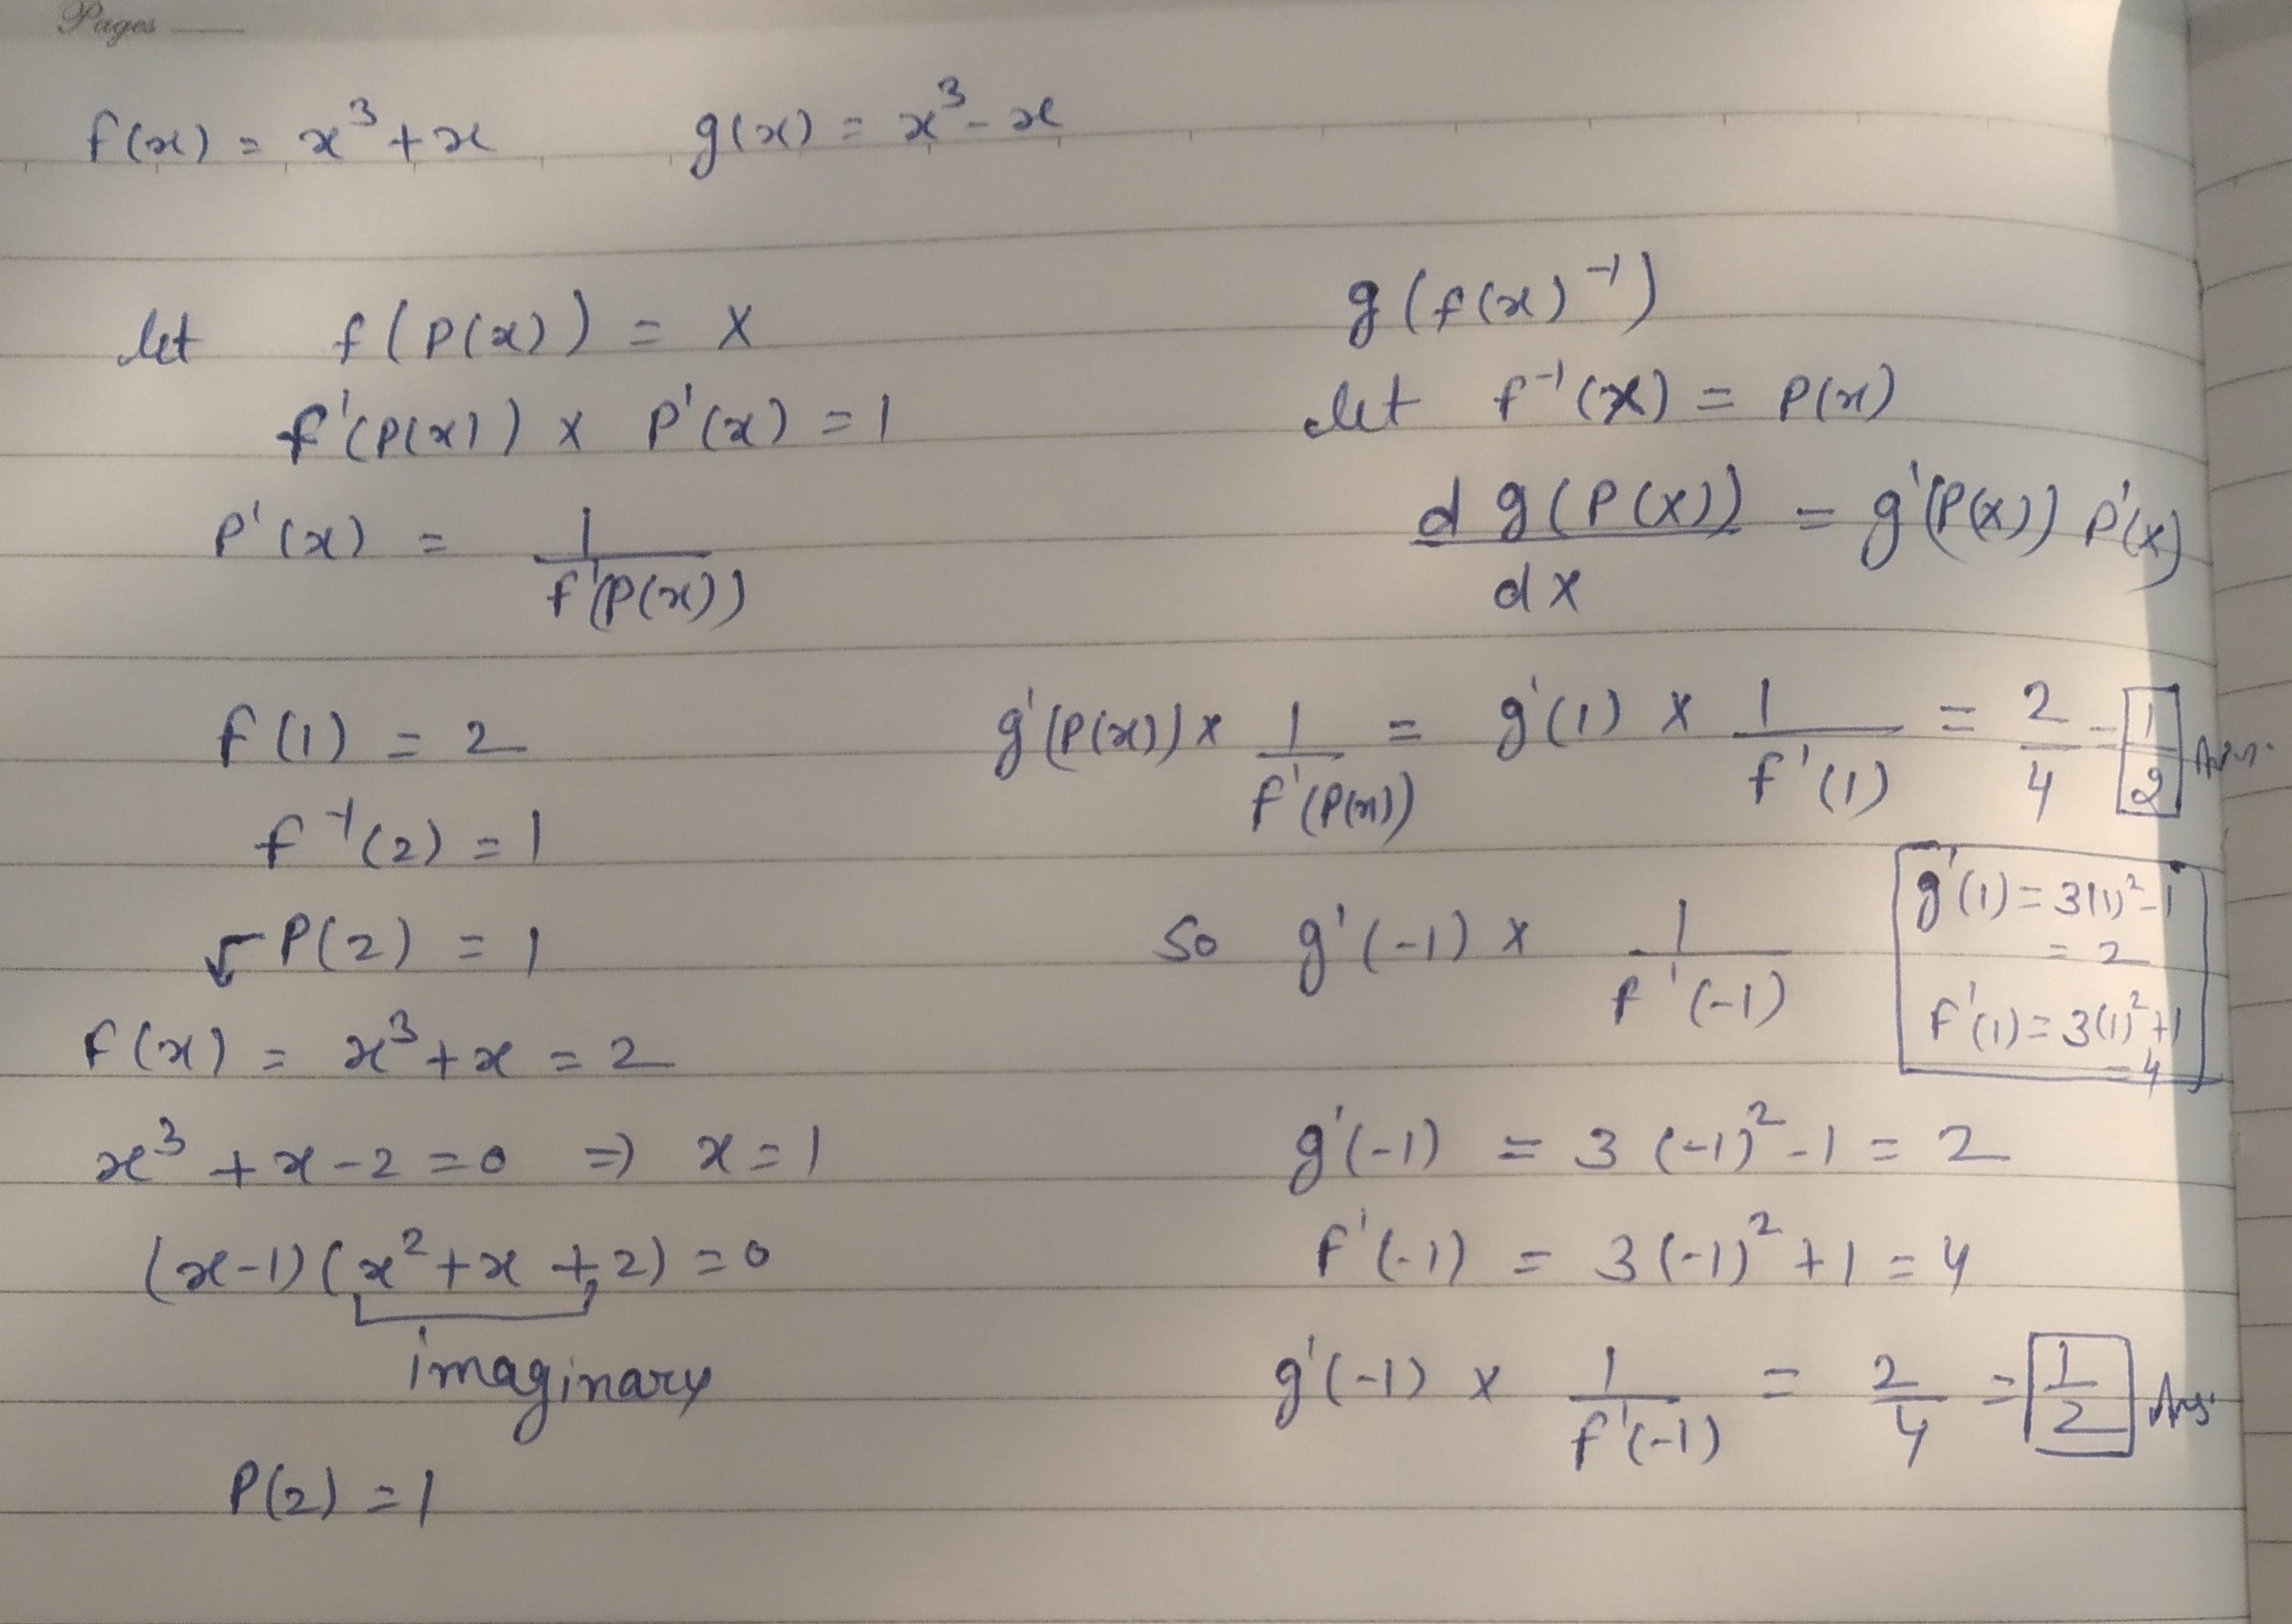 Pages
f(x) = x³+x g(x) = x³-x
let f(P(x)) = x
f'(P(x)) x P'(x) = 1
P'(x) = 1/f'(P(x))
f(1) = 2
f⁻¹(2) = 1
P(2) = 1
f(x) = x³+x = 2
x³+x-2=0 => x=1
(x-1)(x²+x+2)=0
imaginary
P(2) = 1
g(f(x)⁻¹)
let f⁻¹(x) = P(x)
d g(P(x))/dx = g'(P(x)) P'(x)
g'(P(x)) x 1/f'(P(x)) = g'(1) x 1/f'(1) = 2/4 = 1/2 Ans.
So g'(-1) x 1/f'(-1)
g'(1) = 3(1)²-1
= 2
f'(1) = 3(1)²+1
= 4
g'(-1) = 3(-1)²-1 = 2
f'(-1) = 3(-1)²+1 = 4
g'(-1) x 1/f'(-1) = 2/4 = 1/2 Ans